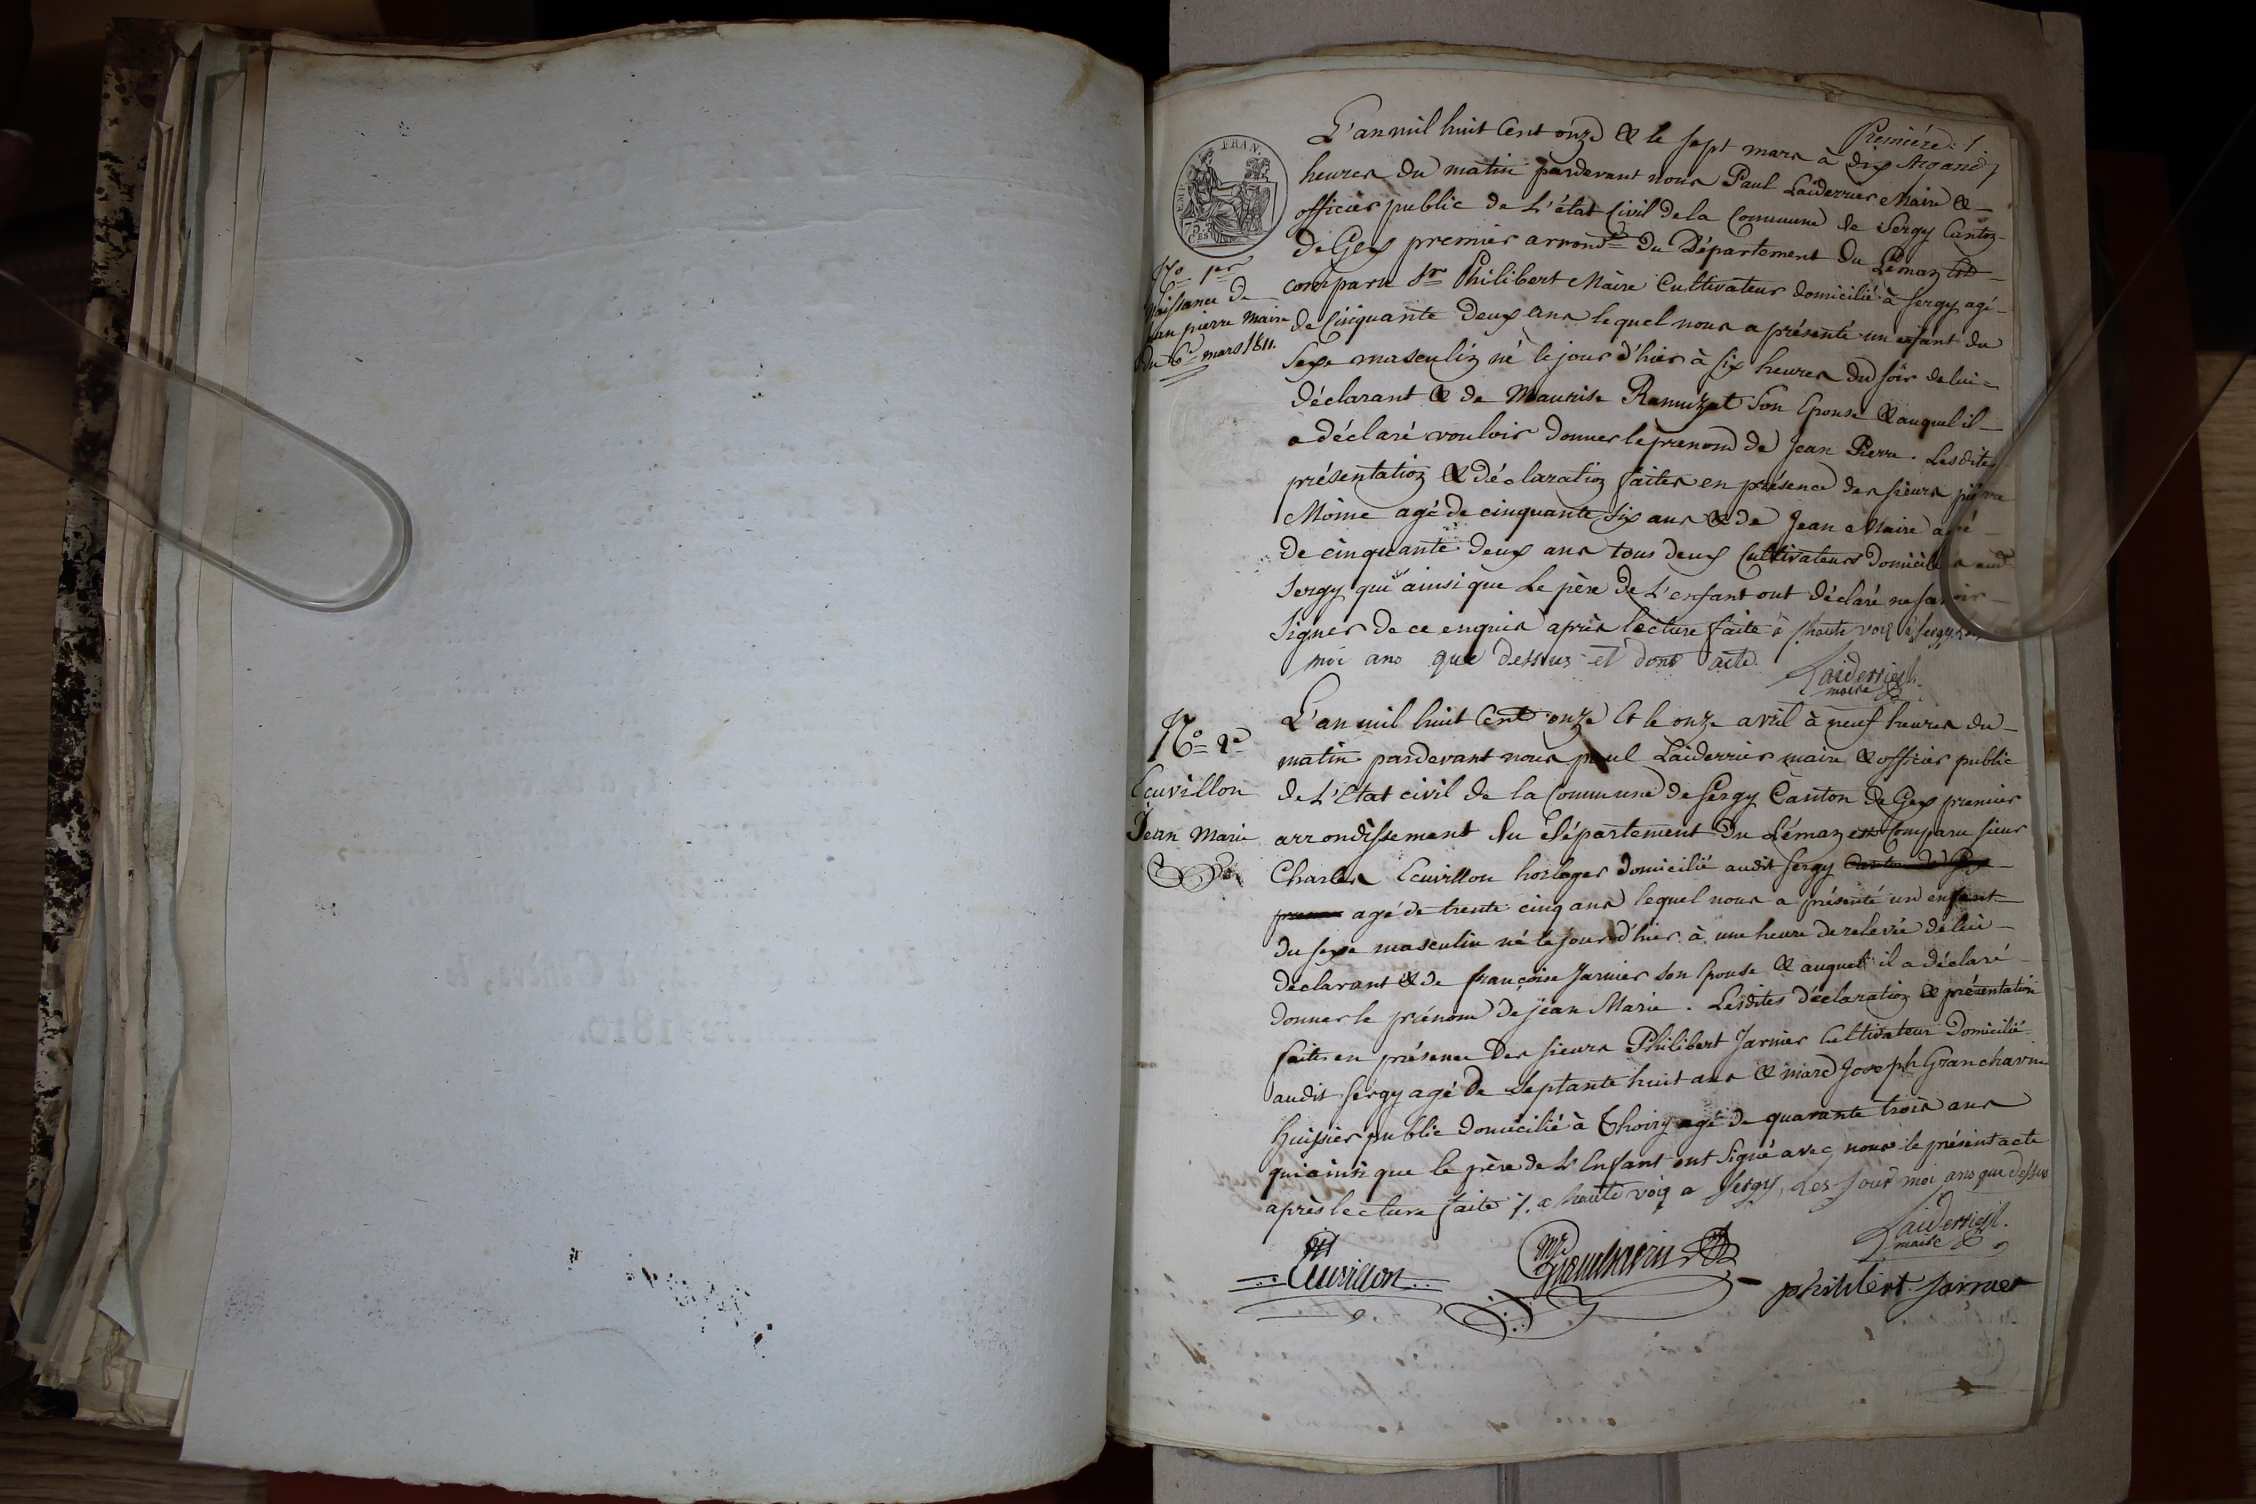 Première 1.
L'an mil huit Cent onze & le sept mars à dix
heures du matin pardevant nous Paul Laiderrier Maire &
officier public de L'état Civil de la Commune de Sergy Canton
De Gex premier arrond.t Du Département Du Léman
comparu Sr Philibert Maire Cultivateur domicilié à Sergy agé
de Cinquante deux ans lequel nous a présenté un enfant du
Sexe masculin né le jour d'hier à six heures du soir de lui
déclarant & de Maurise Ramuzat Son Epouse & auquel il
a déclaré vouloir donner le prenom de Jean Pierre. Lesdites
présentation & déclaration faites en présence des sieurs pierre
Moine agé de cinquante six ans & de Jean Maire agé
de cinquante deux ans tous deux Cultivateurs domiciliés aud
Sergy qui ainsi que Le père De L'enfant ont déclaré ne savoir
Signer de ce enquis après lecture faite à haute voix à Sergy
moi ans que dessus et dont acte.
Laiderrier
maire
EMP. FRAN.
75 C.ES
No 1er
Naissance de
Jean pierre Maire
du 6e mars 1811.
No 2e
Ecuvillon
Jean Marie
L'an mil huit Cent onze & le onze avril à neuf heures du
matin pardevant nous paul Laiderrier maire & officier public
de L'Etat civil de la Commune de Sergy Canton de Gex premier
arrondissement du département Du Léman est Comparu sieur
Charles Ecuvillon horloger domicilié audit Sergy Canton de Gex
premier agé de trente cinq ans lequel nous a présenté un enfant
du sexe masculin né le jour d'hier à une heure de relevée de lui
déclarant & de françoise Jarnier son Epouse & auquel il a déclaré
donner le prénom de jean Marie. Lesdites déclaration & présentation
faites en présence des sieurs Philibert Jarnier Cultivateur Domicilié
audit Sergy agé de septante huit ans & marc Joseph Grancharin
huissier public domicilié à Thoiry agé de quarante trois ans
qui ainsi que le père de L'Enfant ont Signé avec nous le présent acte
après lecture faite à haute voix a Sergy, Les Jour moi ans que dessus
Laiderrier
maire
Ecuvillon
philibert Jarnier